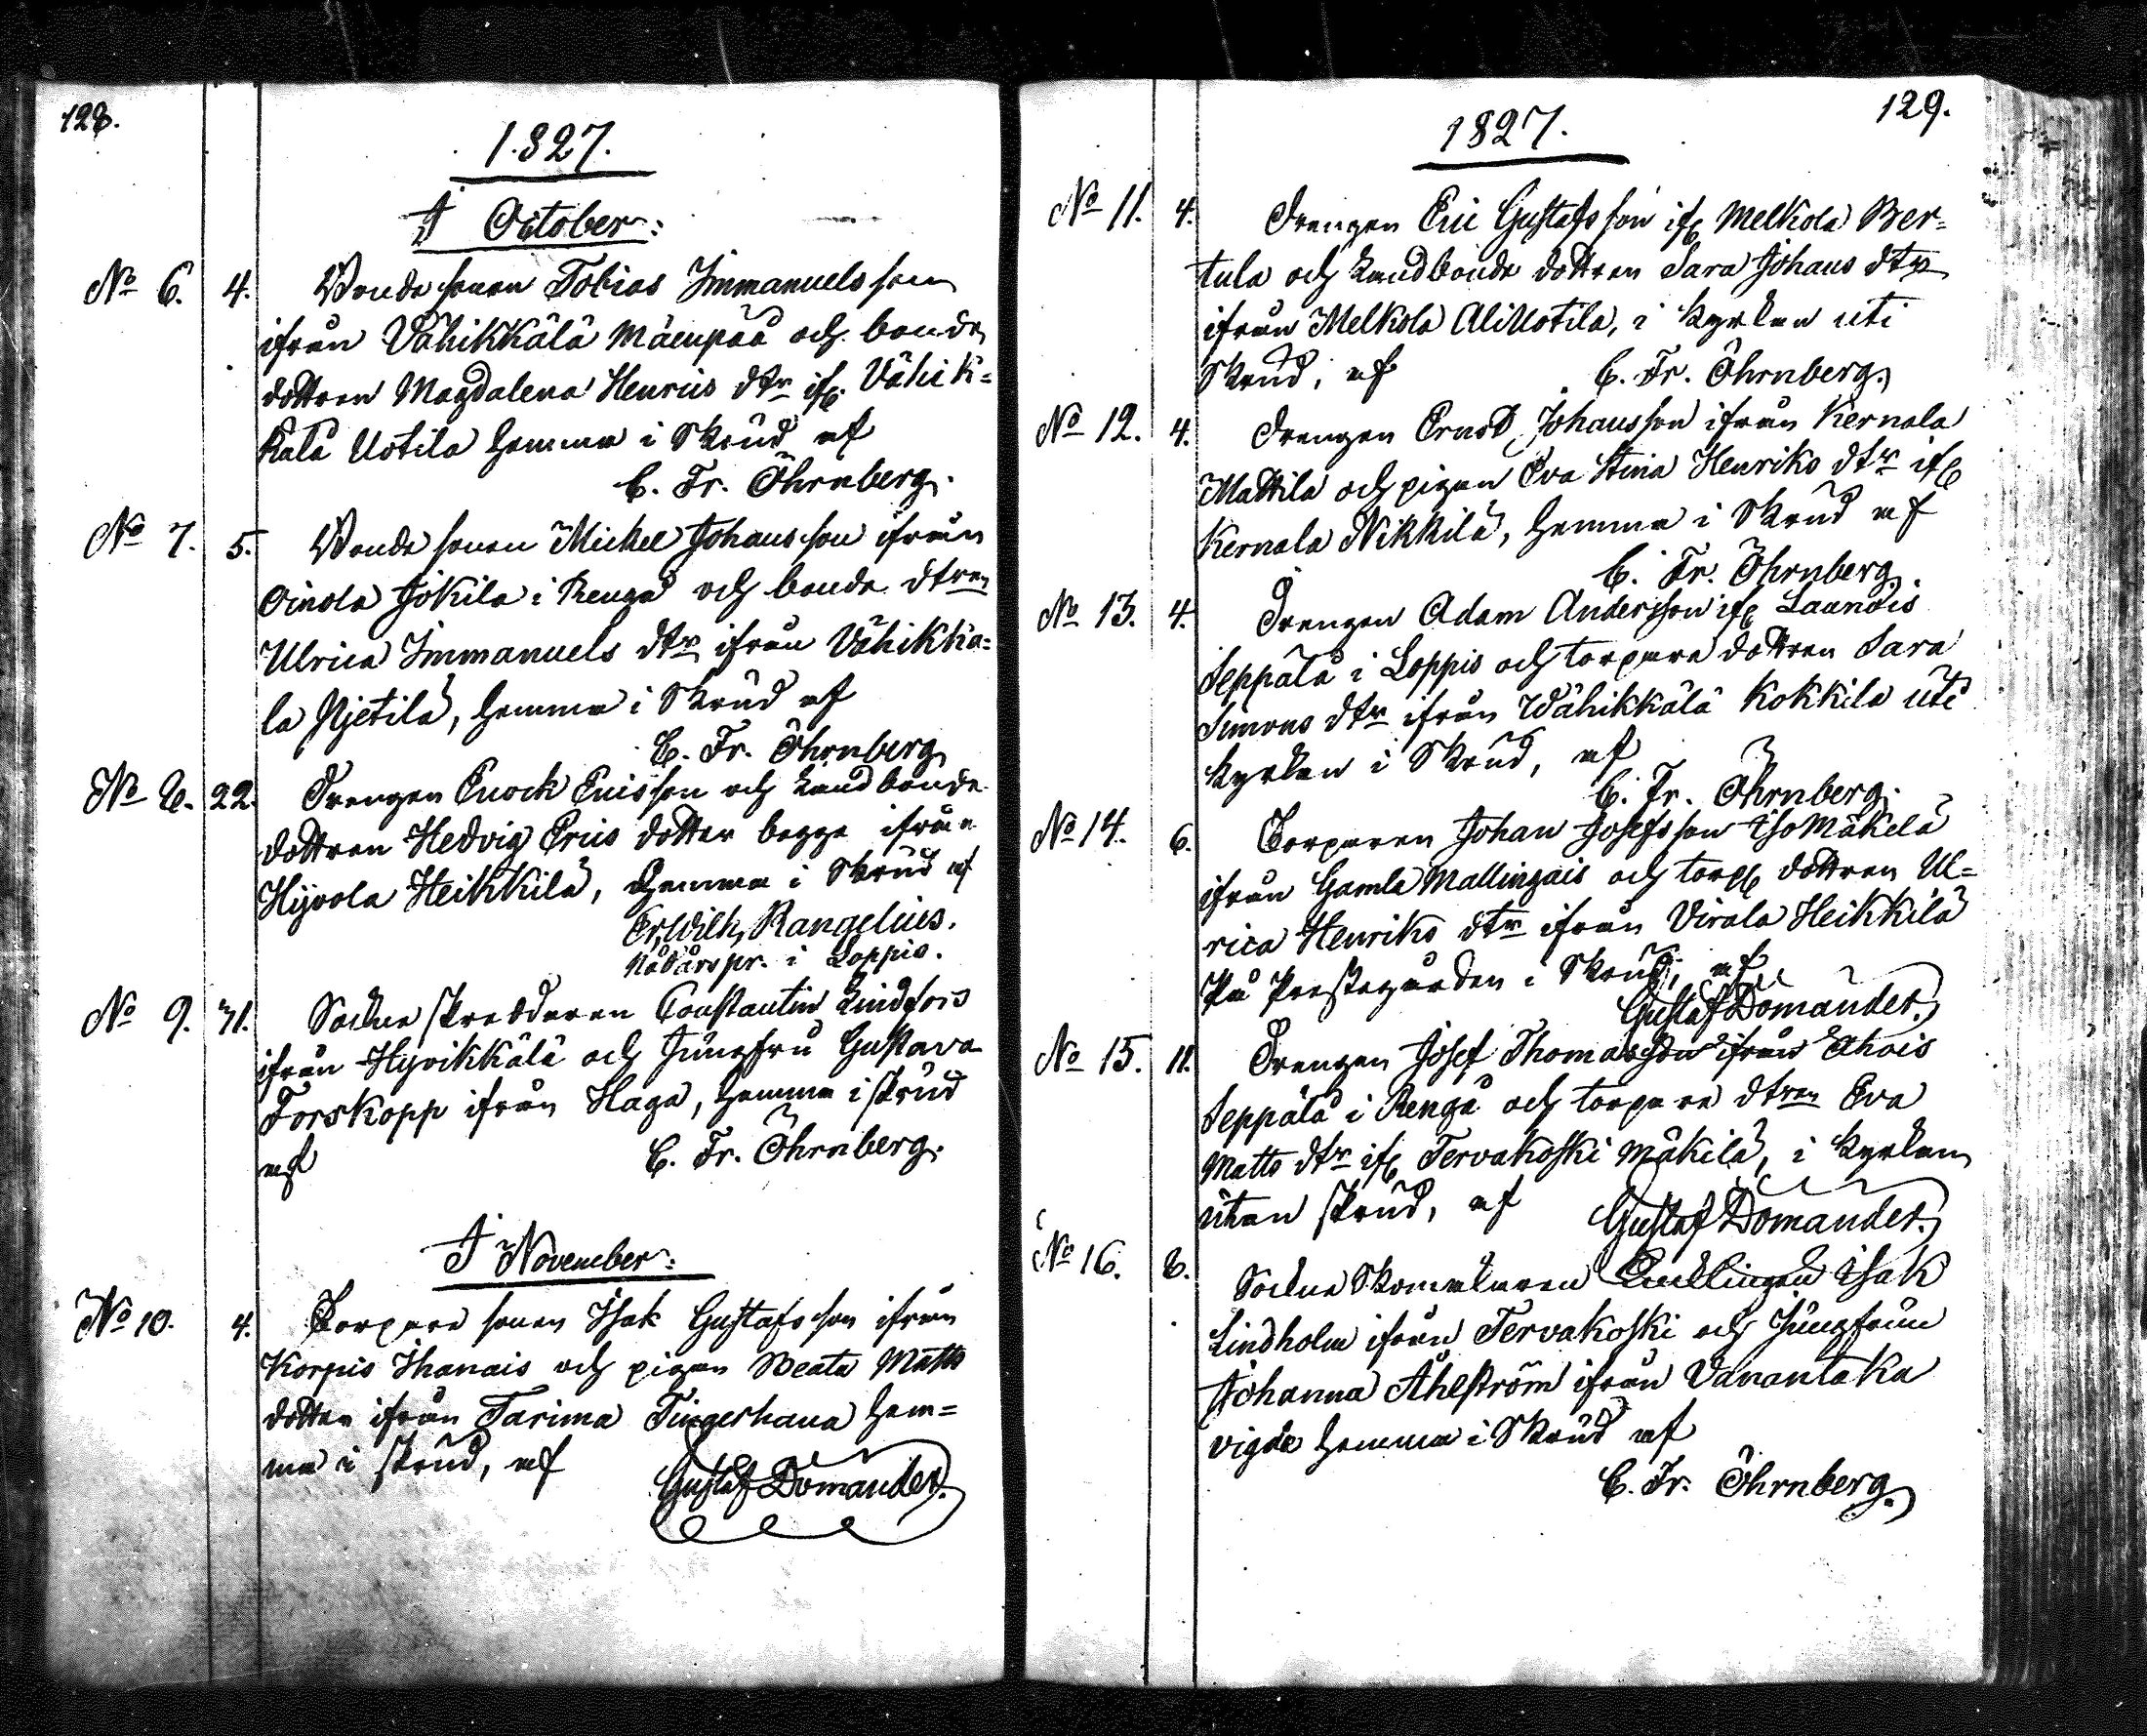 128.
1827.
I October:
No 6. 4. Bonde sonen Tobias Immanuels son
ifrån Vähikkälä Mäenpää och bonde
dottren Magdalena Henrics dtr ifr Vähik=
kälä Uotila hemma i Skrud af
C. Fr. Öhrnberg.
No 7. 5. Bonde sonen Mickel Johans son ifrån
Oinola Jokila i Renga och bonde dtren
Ulrica Immanuels dtr ifrån Vähikkä=
lä Pjetilä, hemma i Skrud af
C. Fr. Öhrnberg
No 8. 22. Drengen Enock Erics son och Landbonde
dottren Hedvig Erics dotter begge ifrån
Hyvola Heikkilä, hemma i Skrud af
Er, Wilh, Rangelius.
Nådårs pr. i Loppis.
No 9. 31. Sockne skreddaren Constantin Lindfors
ifrån Hyvikkälä och Jungfru Gustava
Forskopp ifrån Haga, hemma i skrud
af C. Fr. Öhrnberg.
I November:
No 10. 4. Torpare sonen Isak Gustafs son ifrån
Korpis Ihanais och pigan Beata Matts
dotter ifrån Tarima Tingerhana hem=
ma i skrud, af
Gustaf Domander.
129.
1827.
No 11. 4. Drengen Eric Gustafs son ifr Melkola Ber=
tula och Landbonde dottren Sara Johans dtr
ifrån Melkola AliUotila, i kyrkan uti
Skrud, af C. Fr. Öhrnberg.
No 12. 4. Drengen Ernst Johans son ifrån Kernala
Mattila och pigan Eva Stina Henriks dtr ifr
Kernala Nikkilä, hemma i Skrud af
C. Fr. Öhrnberg.
No 13. 4. Drengen Adam Andersson ifr Laandis
Seppälä i Loppis och torpare dottren Sara
Simons dtr ifrån Wähikkälä Kokkila uti
kyrkan i Skrud, af
C. Fr. Öhrnberg.
No 14. 6. Torparen Johan Josefs son Iso Mäkelä
ifrån Gamla Mallingais och torp dottren Ul=
rica Henriks dtr ifrån Virala Heikkilä
På Prestegården i Skrud, af
Gustaf Domander.
No 15. 11. Drengen Josef Thomasson ifrån Ahois
Seppälä i Renga och torpare dtren Eva
Matts dtr ifr Tervakoski Mäkilä, i kyrkan
utan skrud, af Gustaf Domander.
No 16. 8. Sockne Skomakaren Isak
Lindholm ifrån Tervakoski och Jungfrun
Johanna Åhlström ifrån Vanantaka
vigde hemma i Skrud af
C. Fr. Öhrnberg.